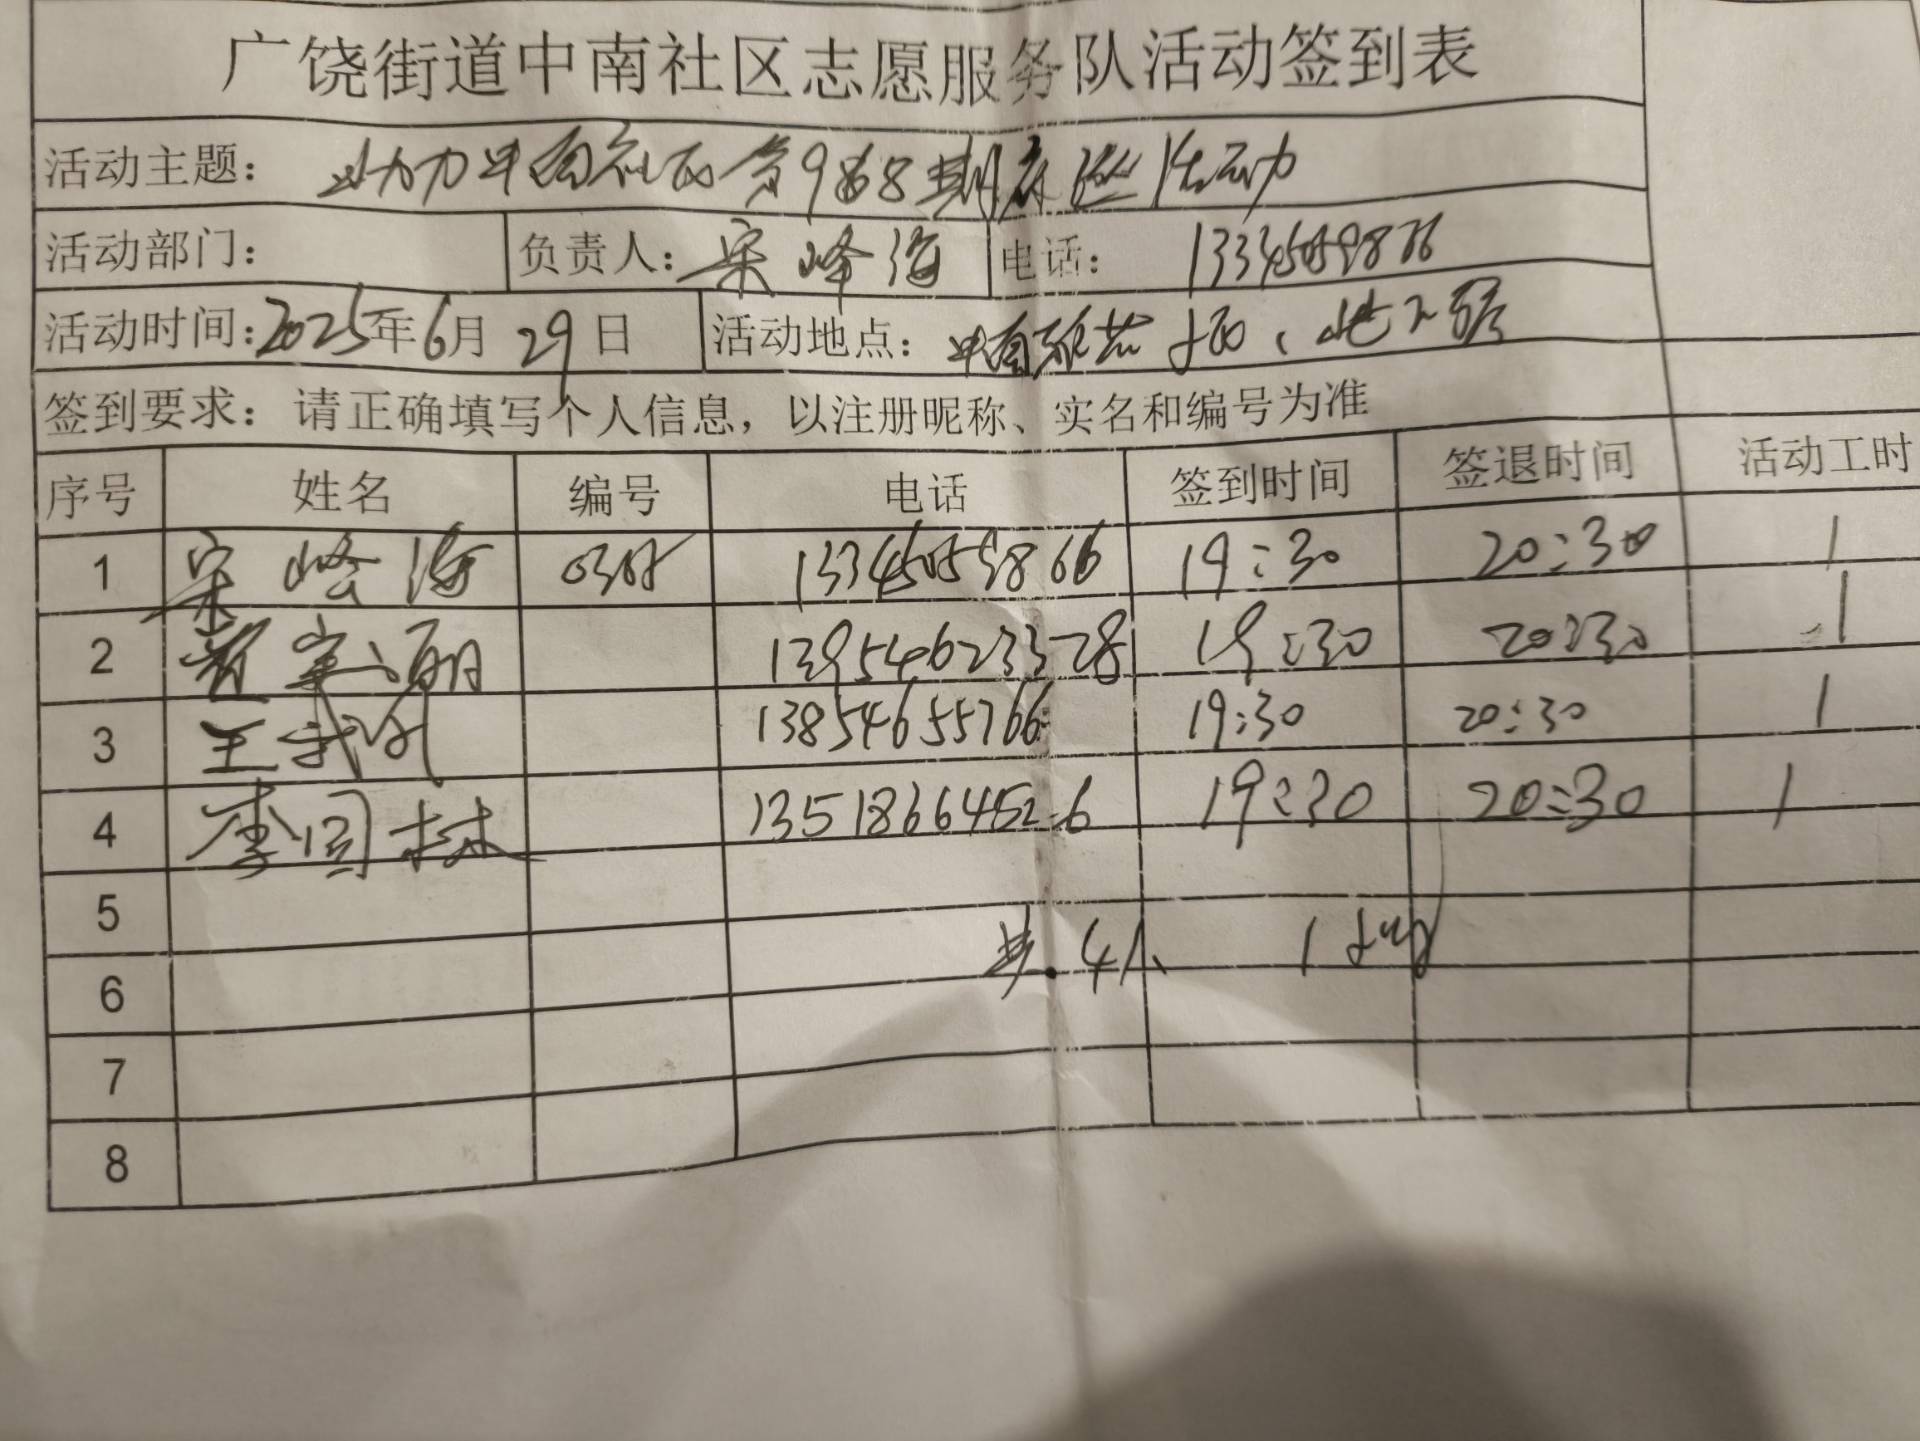 广饶街道中南社区志愿服务队活动签到表
活动主题： 助力中南社区第968期夜巡活动
活动部门： 负责人：宋峰海 电话： 13345059866
活动时间：2025年6月29日 活动地点：中南 小区、地下
签到要求：请正确填写个人信息，以注册昵称、实名和编号为准
序号 姓名 编号 电话 签到时间 签退时间 活动工时
1 宋峰海 13345059866 19:30 20:30 1
2 13954623328 19:30 20:30 1
3 王 13854655766 19:30 20:30 1
4 李 林 13518664526 19:30 20:30 1
5
共.4人 1小时
6
7
8